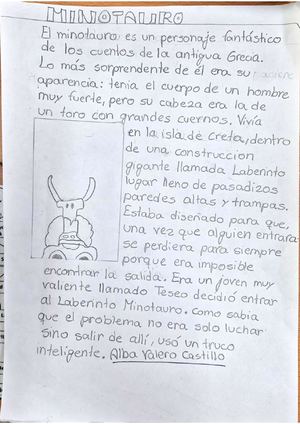 MINOTAURO
El minotauro es un personaje fantástico
de los cuentos de la antigua Grecia.
Lo más sorprendente de él era su
aparencia: tenía el cuerpo de un hombre
muy fuerte, pero su cabeza era la de
un toro con grandes cuernos. Vivía
en la isla de Creta, dentro
de una construccion
gigante llamada Laberinto
lugar lleno de pasadizos
paredes altas y trampas.
Estaba diseñado para que,
una vez que alguien entrara
se perdiera para siempre
porque era imposible
encontrar la salida. Era un joven muy
valiente llamado Teseo decidió entrar
al Laberinto Minotauro. Como sabia
que el problema no era solo luchar
sino salir de allí, usó un truco
inteligente. Alba Valero Castillo